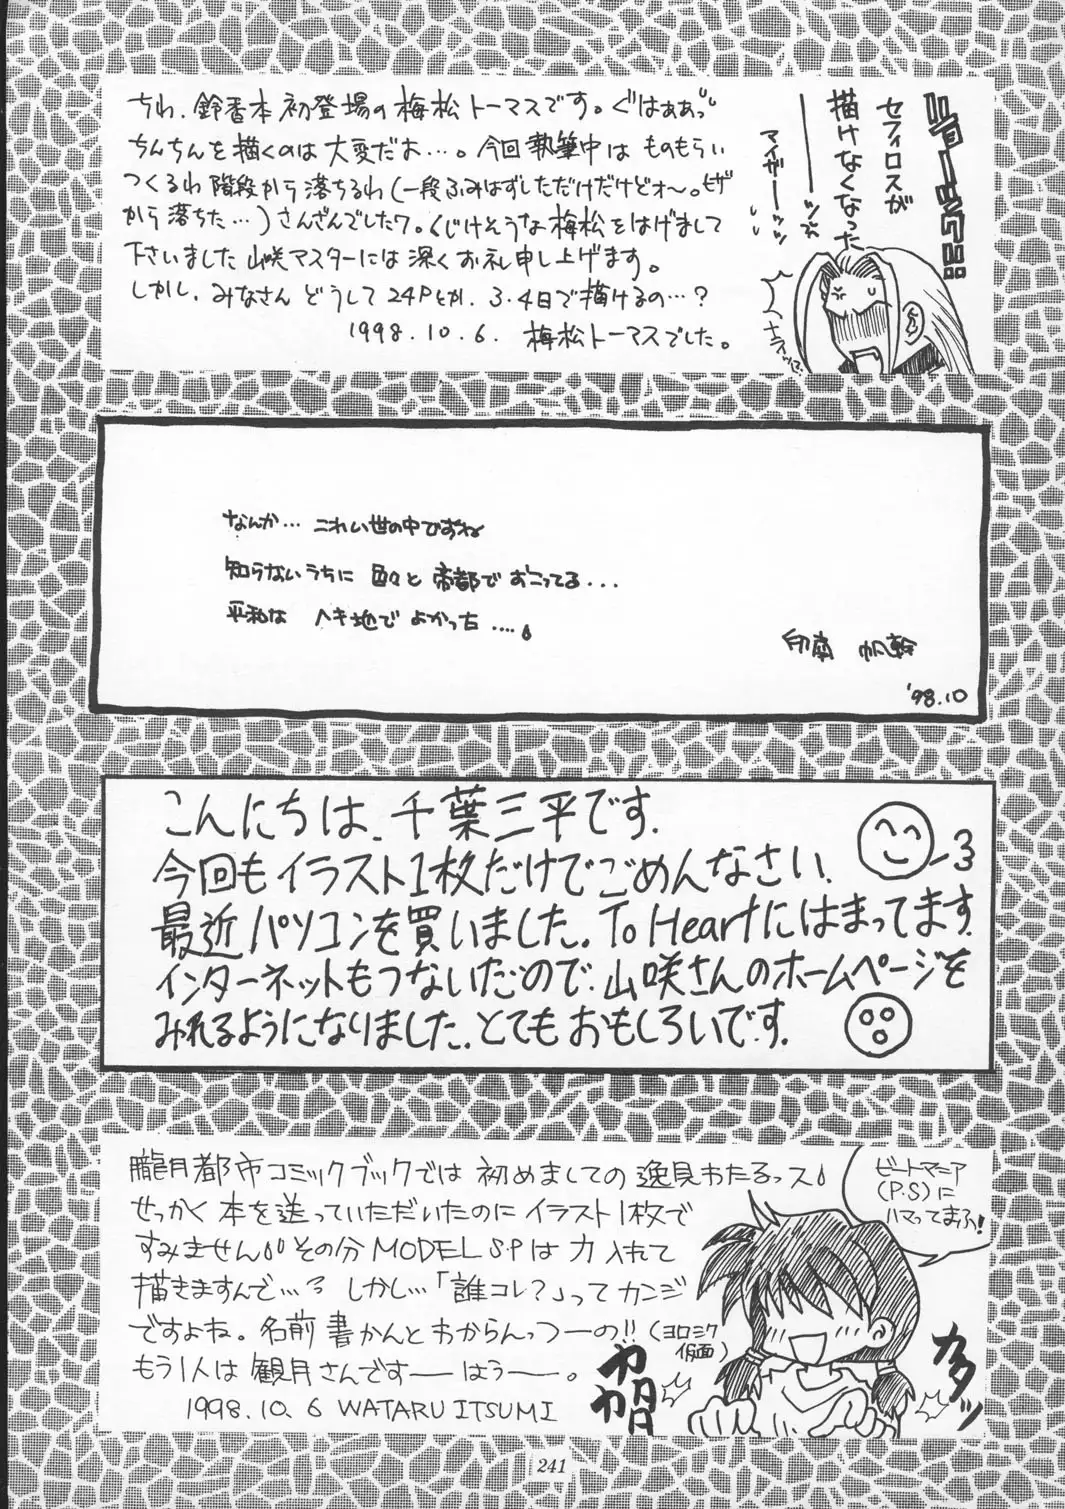 ちわ、鈴香本初登場の梅松トーマスです。ぐはぁぁっ
ちんちんを描くのは大変だお…。今回執筆中はものもらい
つくるわ階段から落ちるわ(一段ふみはずしただけだけどォ〜。ヒザ
から落ちた…)さんざんでしたワ。くじけそうな梅松をはげまして
下さいました山咲マスターには深くお礼申し上げます。
しかし、みなさんどうして24Pとか、3.4日で描けるの…?
1998.10.6. 梅松トーマスでした。
セフィロスが
描けなくなった
――――ッッ
マイガーーッッ
なんか… こわい世の中ですね
知らないうちに 色々と 帝都で おこってる...
平和な ヘキ地で よかった ....
印南 帆幹
'98.10
こんにちは、千葉三平です.
今回もイラスト1枚だけでごめんなさい.
最近パソコンを買いました. To Heartにはまってます.
インターネットもつないだので、山咲さんのホームページを
みれるようになりました. とてもおもしろいです.
朧月都市コミックブックでは初めましての逸見わたるっス
せっかく本を送っていただいたのにイラスト1枚で
すみません その分 MODEL S.Pは力入れて
描きますんで…? しかし…「誰コレ?」ってカンジ
ですよね。名前書かんとわからんっつーの!!(ヨロシク
仮面)
もう1人は観月さんですーーはぅーー。
1998.10.6 WATARU ITSUMI
ビートマニア
(P.S)に
ハマってまふ!
カタッ
カカカカ
241